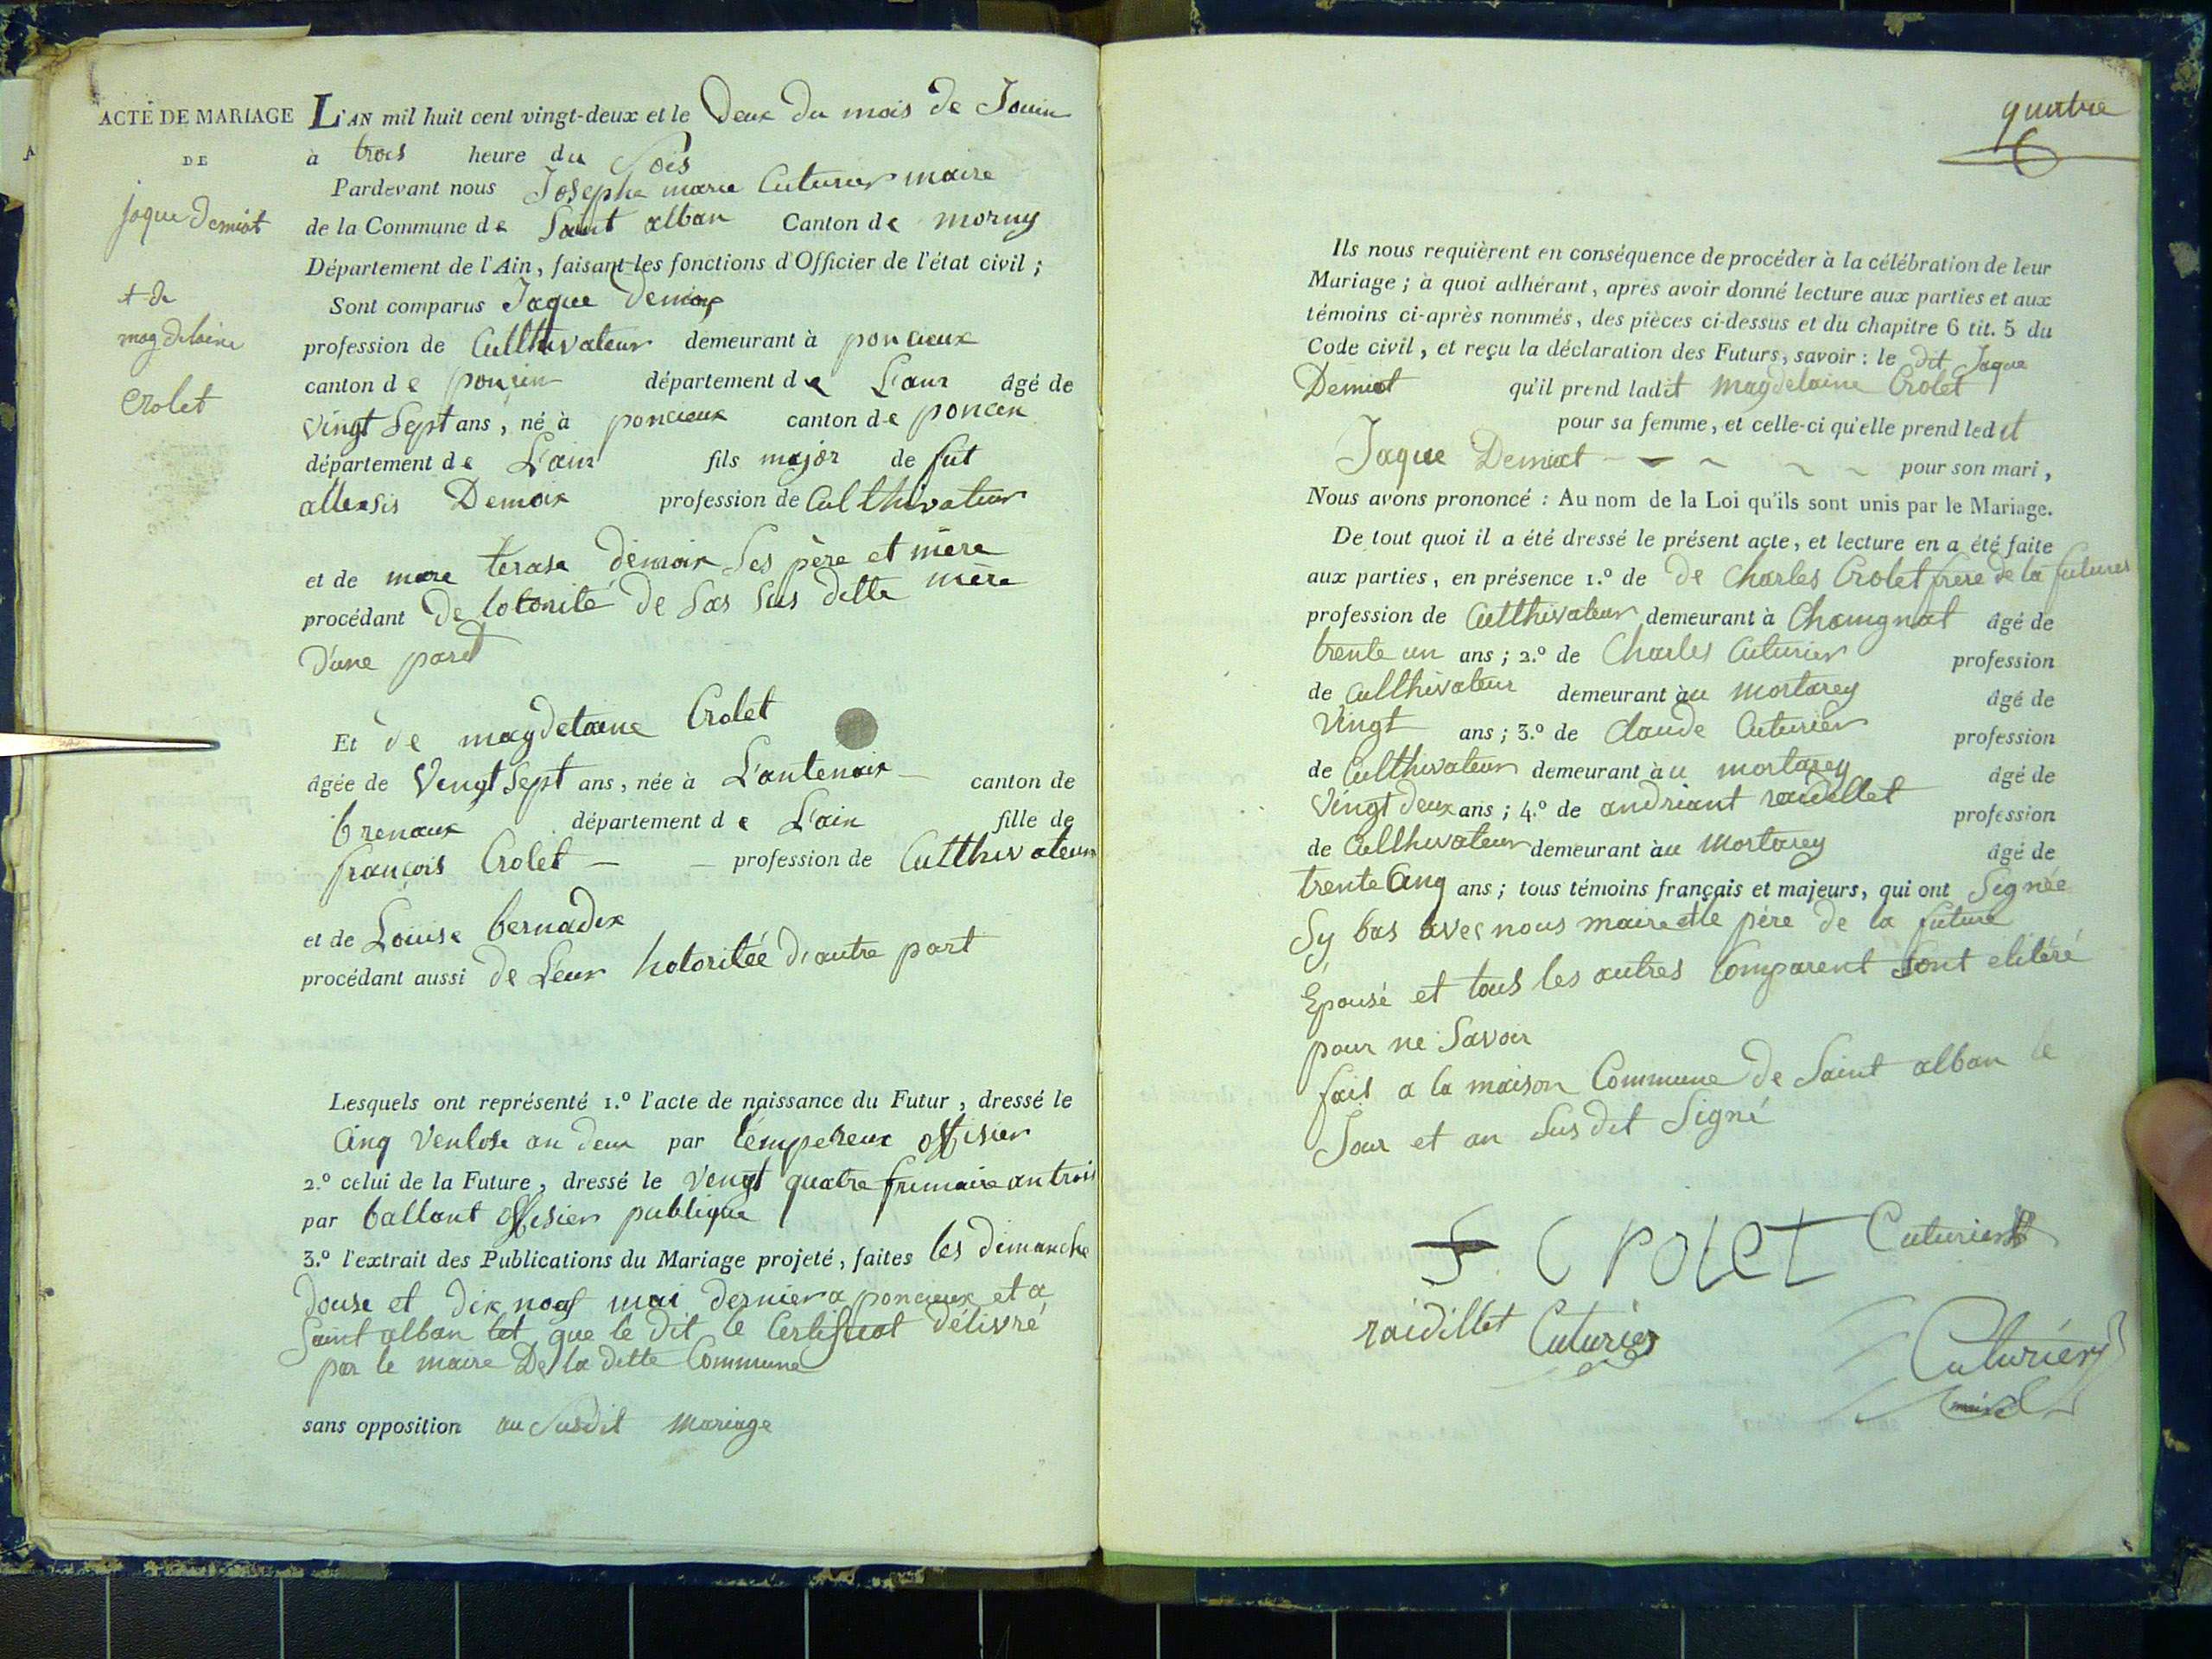 ACTE DE MARIAGE
DE
jaque Demiat
+ de
magdelaine
Crolet
L'AN mil huit cent vingt-deux et le Deux du mois de Jouin
à trois heure du Sois
Pardevant nous Josephe marie Cuturier maire
de la Commune de Saint alban Canton de morny
Département de l'Ain, faisant les fonctions d'Officier de l'état civil ;
Sont comparus Jaque
profession de Cullthivateur demeurant à poncieux
canton de poncin département de L'ain âgé de
vingt Sept ans, né à poncieux canton de poncin
département de L'ain fils majör de fut
allexsis Demoix profession de Culthivateur
et de mare terase demoix Ses père et mère
procédant De lotorité de Sas Sus ditte mère
D'une part
Et de magdelaine Crolet
âgée de Vengt Sept ans, née à L'antenaix canton de
brenaux département de L'ain fille de
françois Crolet — — profession de Cultthivateur
et de Louise bernadix
procédant aussi de Leur hotoritée D'autre part
Lesquels ont représenté 1.° l'acte de naissance du Futur, dressé le
Cinq Ventose an deux par l'empereux offisier
2.° celui de la Future, dressé le Vengt quatre frimaire an trois
par ballant offisier publique
3.° l'extrait des Publications du Mariage projeté, faites les dimanche
douse et dix noef mai dernier a poncieux et a
Saint alban tet que le dit le Certificat délivré
par le maire De la ditte Commune
sans opposition au Susdit mariage
quatre
6
Ils nous requièrent en conséquence de procéder à la célébration de leur
Mariage ; à quoi adhérant, après avoir donné lecture aux parties et aux
témoins ci-après nommés, des pièces ci-dessus et du chapitre 6 tit. 5 du
Code civil, et reçu la déclaration des Futurs, savoir : le dit Jaque
Demiat qu'il prend ladit magdelaine Crolet
pour sa femme, et celle-ci qu'elle prend ledit
Jaque Demiat — — ~ ~ ~ pour son mari,
Nous avons prononcé : Au nom de la Loi qu'ils sont unis par le Mariage.
De tout quoi il a été dressé le présent acte, et lecture en a été faite
aux parties, en présence 1.° de de Charles Crolet frere de la futures
profession de Cultthivateur demeurant à Chaingnat âgé de
trente un ans ; 2.° de Charles Cuturier profession
de Cullthivateur demeurant àu mortarey âgé de
Vingt ans ; 3.° de Claude Cuturier profession
de Culthivateur demeurant àu mortarey âgé de
Vingt deux ans ; 4.° de andriant raidellet profession
de Cullthivateur demeurant àu mortarey âgé de
trente Cinq ans ; tous témoins français et majeurs, qui ont Signée
Sy bas avec nous maire et le père de la future
Epousé et tous les autres Comparent Sont elitéré
pour ne Savoir
fait a la maison Commune de Saint alban le
Jour et an Sus dit Signé
F. CROLET Cuturier
raidillet Cuturier
Cuturier
maire